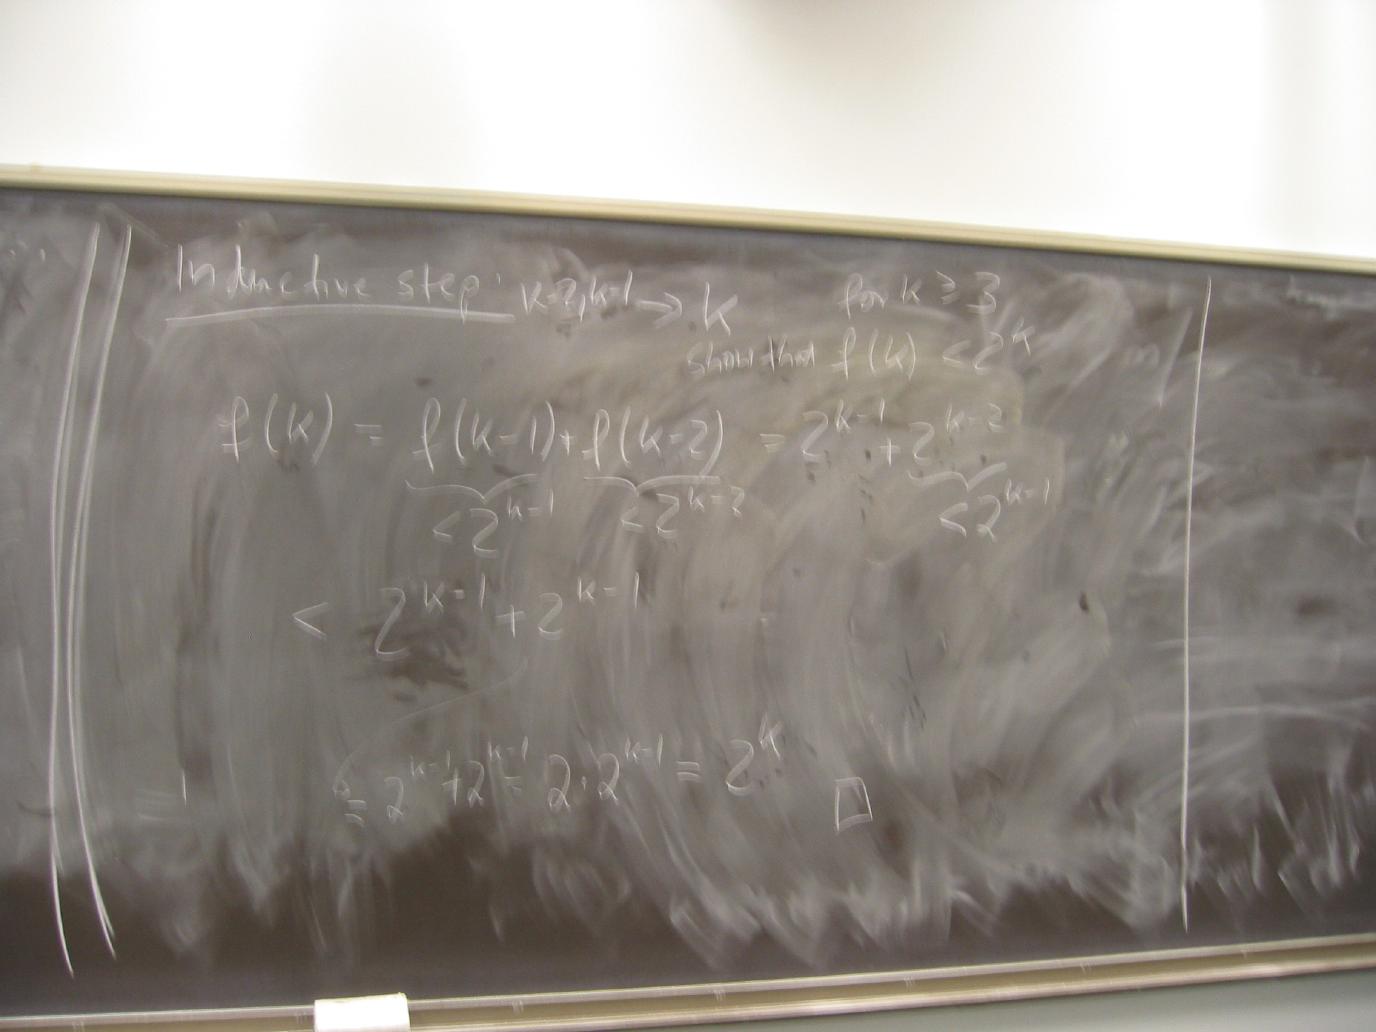 Inductive step: k-2, k-1 → k for k ≥ 3
show that f(k) < 2^k
f(k) = f(k-1) + f(k-2) = 2^{k-1} + 2^{k-2}
< 2^{k-1} < 2^{k-2} < 2^{k-1}
< 2^{k-1} + 2^{k-1}
= 2^{k-1} + 2^{k-1} = 2 · 2^{k-1} = 2^k □